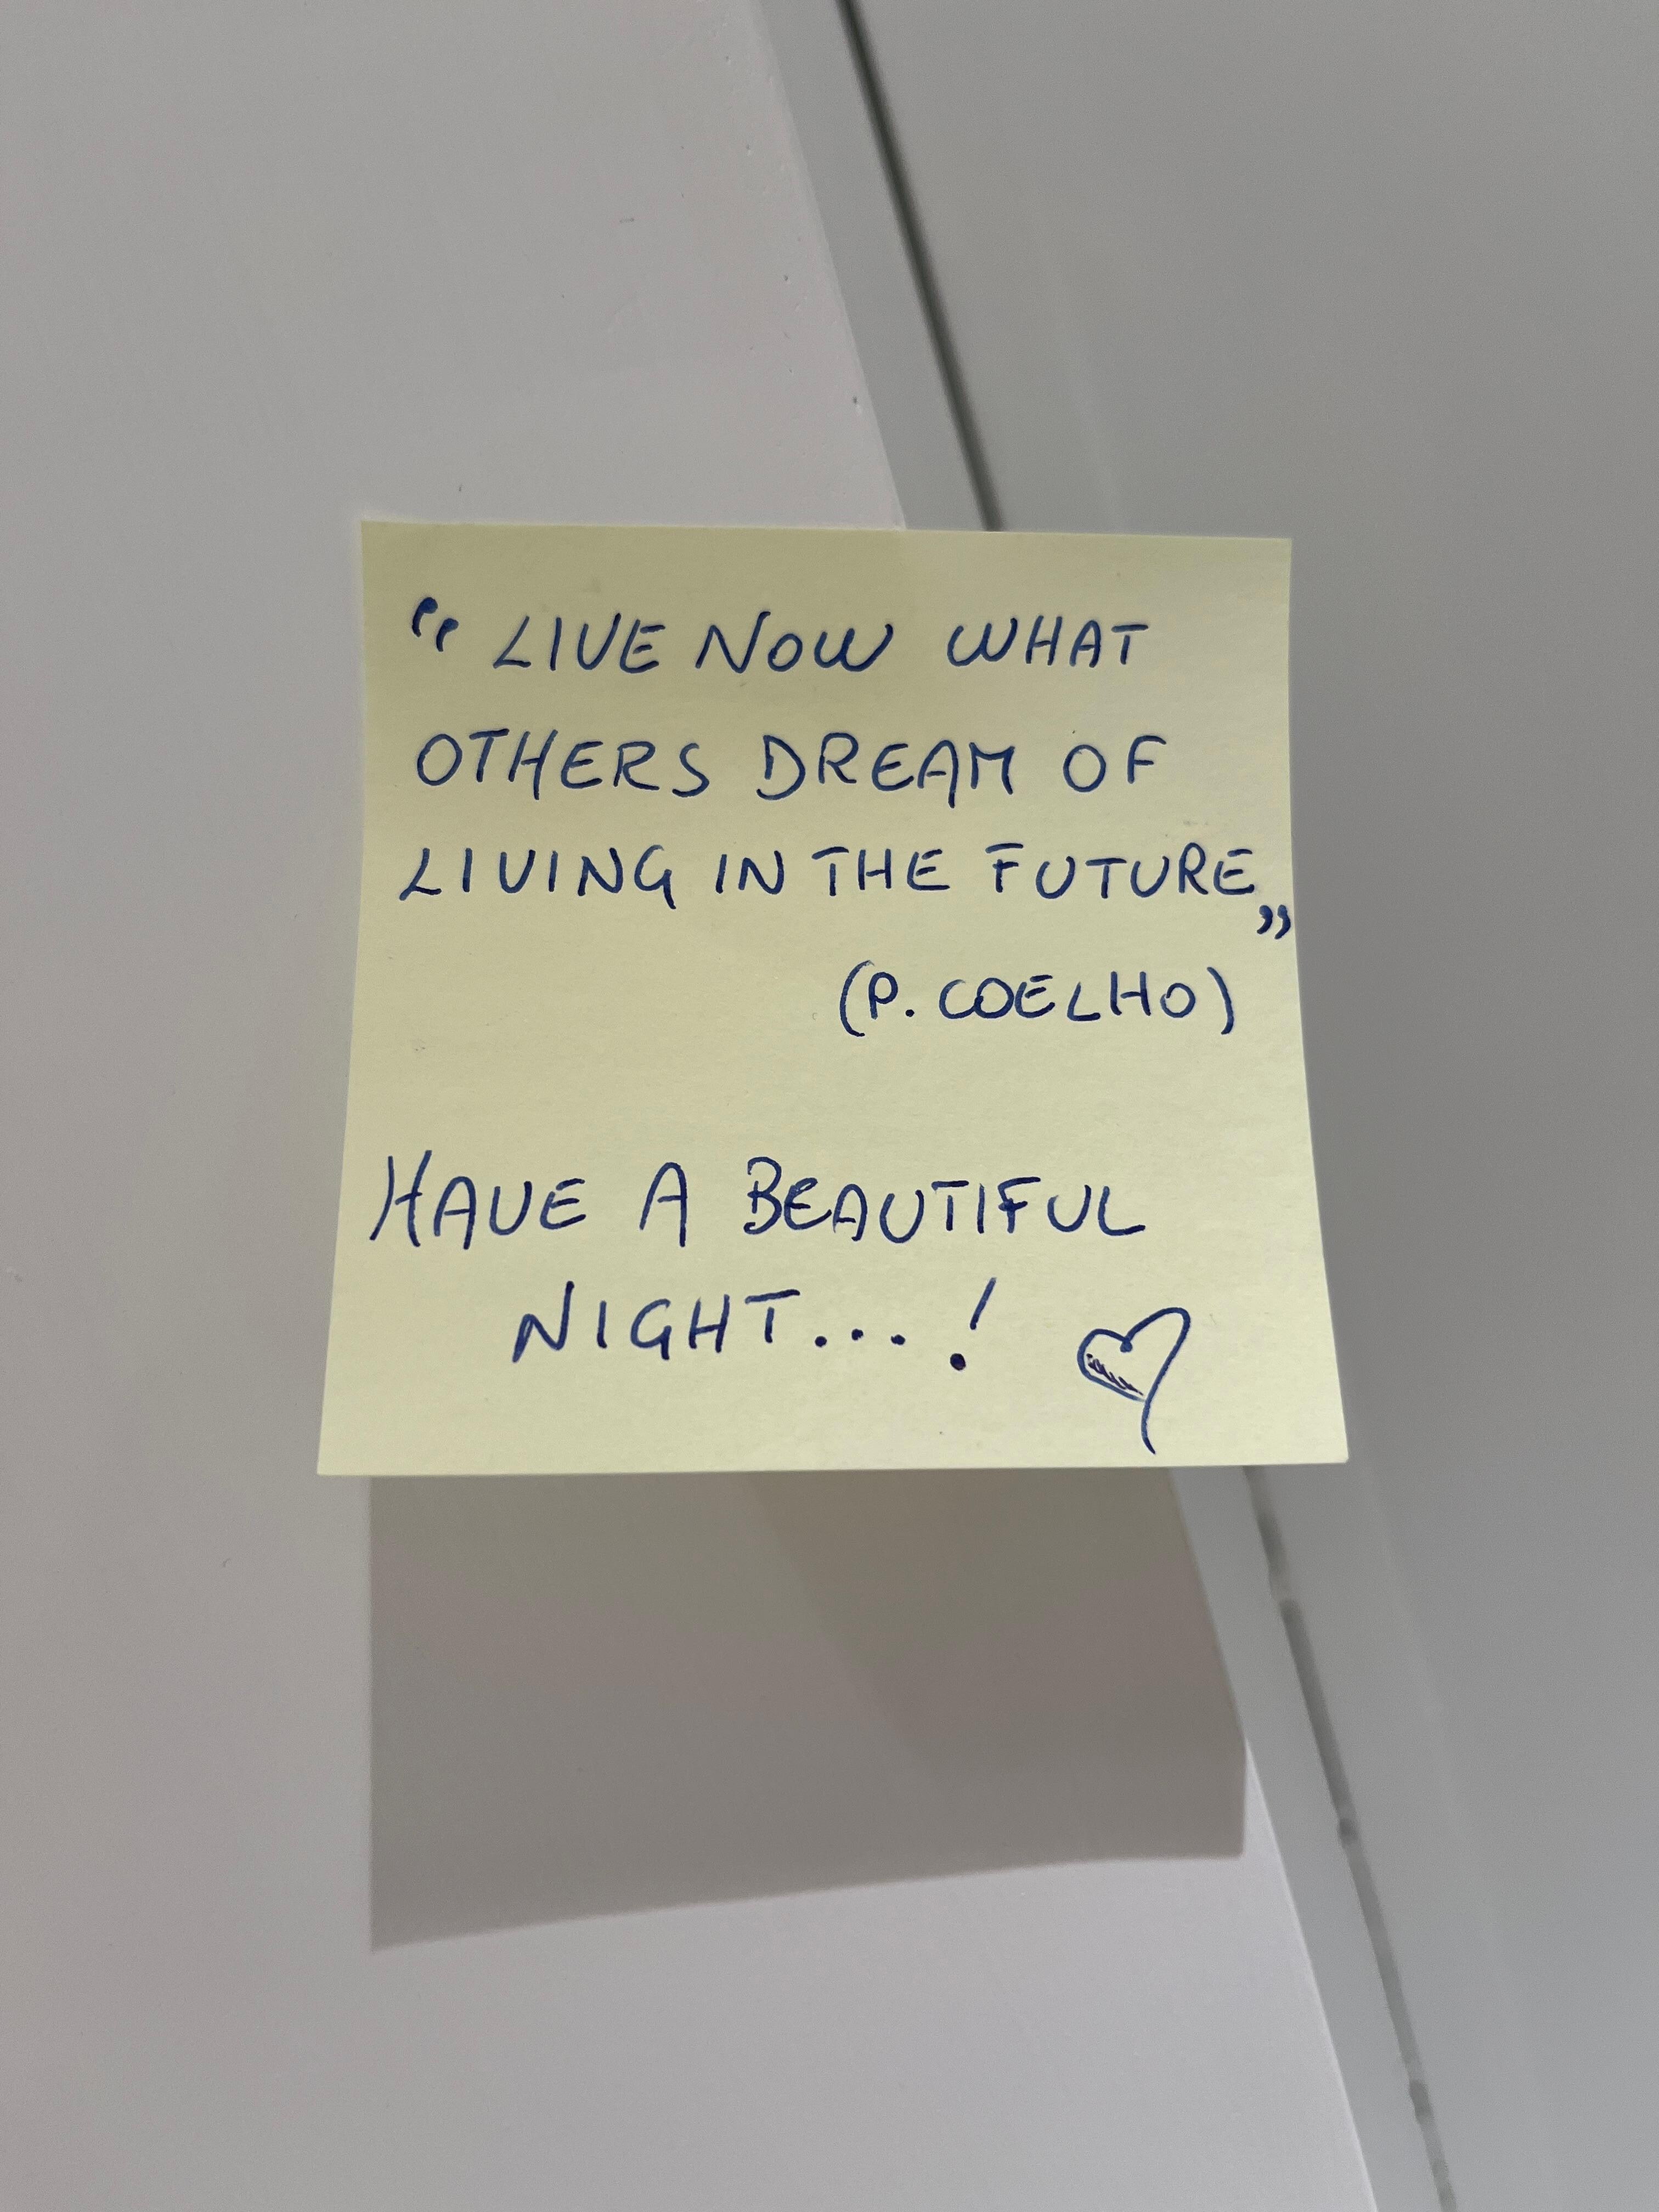 “ LIVE NOW WHAT
OTHERS DREAM OF
LIVING IN THE FUTURE”
(P. COELHO)
HAVE A BEAUTIFUL
NIGHT...!